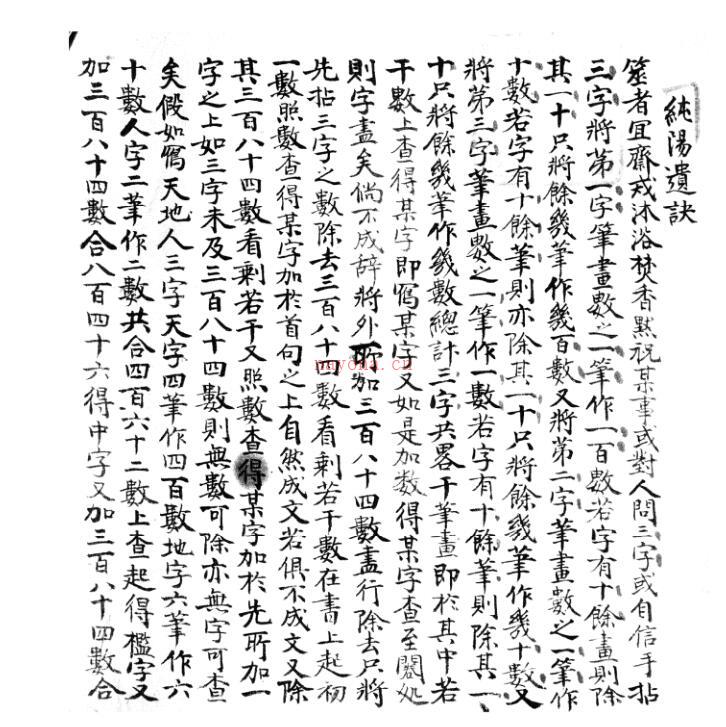 純陽遺訣
筮者宜齋戒沐浴焚香默祝某事或對人問三字或自信手拈
三字將第一字筆畫數之一筆作一百數若字有十餘畫則除
其一十只將餘幾筆作幾百數又將第二字筆畫數之一筆作
十數若字有十餘筆則亦除其一十只將餘幾筆作幾十數又
將第三字筆畫數之一筆作一數若字有十餘筆則除其一
十只將餘幾筆作幾數總計三字共畧干筆畫即於其中若
干數上查得某字即寫某字又如是加数得某字查至閣処
則字盡矣倘不成辞將外所加三百八十四數盡行除去只將
先拈三字之數除去三百八十四數看剩若干數在書上起初
一數照數查得某字加於首句之上自然成文若俱不成文又除
其三百八十四數看剩若干又照數查得某字加於先所加一
字之上如三字未及三百八十四數則無數可除亦無字可查
矣假如寫天地人三字天字四筆作四百數地字六筆作六
十數人字二筆作二數共合四百六十二數上查起得檻字又
加三百八十四數合八百四十六得中字又加三百八十四數合
nayona.cn